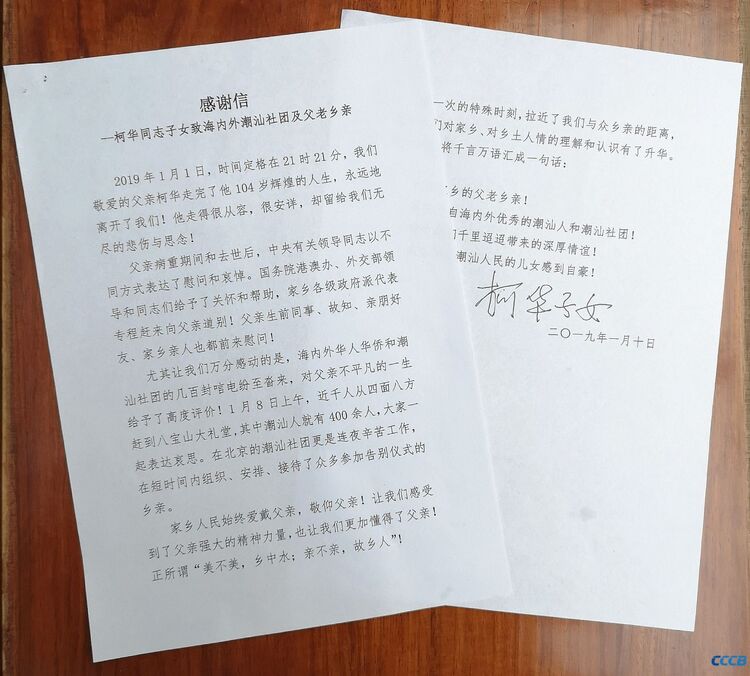 感谢信
—柯华同志子女致海内外潮汕社团及父老乡亲
2019年1月1日，时间定格在21时21分，我们
敬爱的父亲柯华走完了他104岁辉煌的人生，永远地
离开了我们！他走得很从容，很安详，却留给我们无
尽的悲伤与思念！
父亲病重期间和去世后，中央有关领导同志以不
同方式表达了慰问和哀悼。国务院港澳办、外交部领
导和同志们给予了关怀和帮助，家乡各级政府派代表
专程赶来向父亲道别！父亲生前同事、故知、亲朋好
友、家乡亲人也都前来慰问！
尤其让我们万分感动的是，海内外华人华侨和潮
汕社团的几百封唁电纷至沓来，对父亲不平凡的一生
给予了高度评价！1月8日上午，近千人从四面八方
赶到八宝山大礼堂，其中潮汕人就有400余人，大家一
起表达哀思。在北京的潮汕社团更是连夜辛苦工作，
在短时间内组织、安排、接待了众多参加告别仪式的
乡亲。
家乡人民始终爱戴父亲，敬仰父亲！让我们感受
到了父亲强大的精神力量，也让我们更加懂得了父亲！
正所谓“美不美，乡中水；亲不亲，故乡人”！
一次的特殊时刻，拉近了我们与众乡亲的距离，
们对家乡、对乡土人情的理解和认识有了升华。
将千言万语汇成一句话：
乡的父老乡亲！
自海内外优秀的潮汕人和潮汕社团！
们千里迢迢带来的深厚情谊！
潮汕人民的儿女感到自豪！
柯华子女
二〇一九年一月十日
CCCB